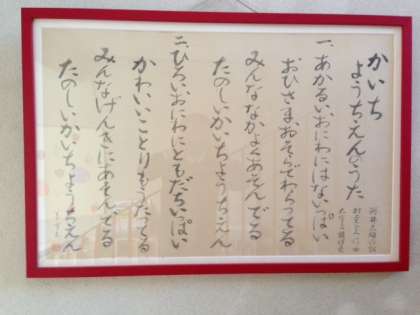 かいち
ようちえんのうた
一、あかるいおにわにはないっぱい
おひさまおそらでわらってる
みんななかよくあそんでる
たのしいかいちようちえん
二、ひろいおにわにともだちいっぱい
かわいいことりもうたってる
みんなげんきにあそんでる
たのしいかいちようちえん